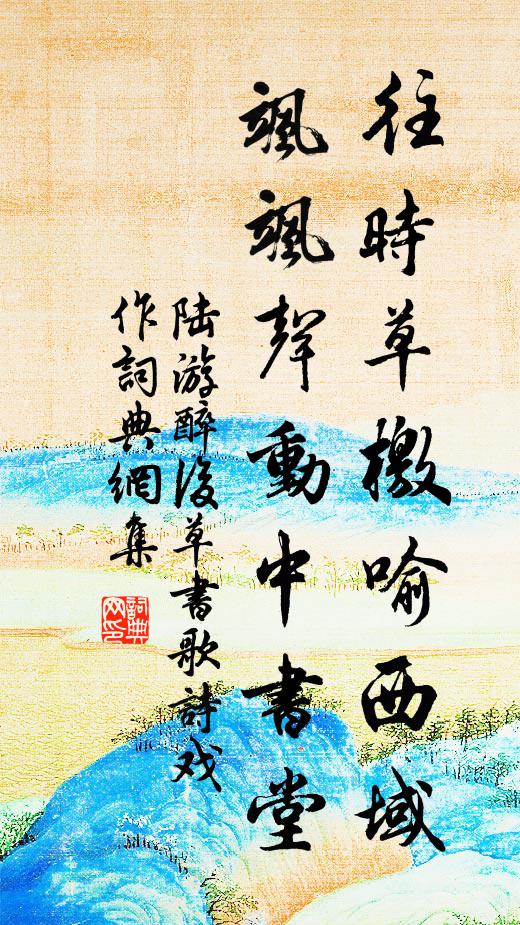 往時草檄喻西域
颯颯聲動中書堂
陆游醉後草書歌詩戏
作詞典網集
詞典
网印